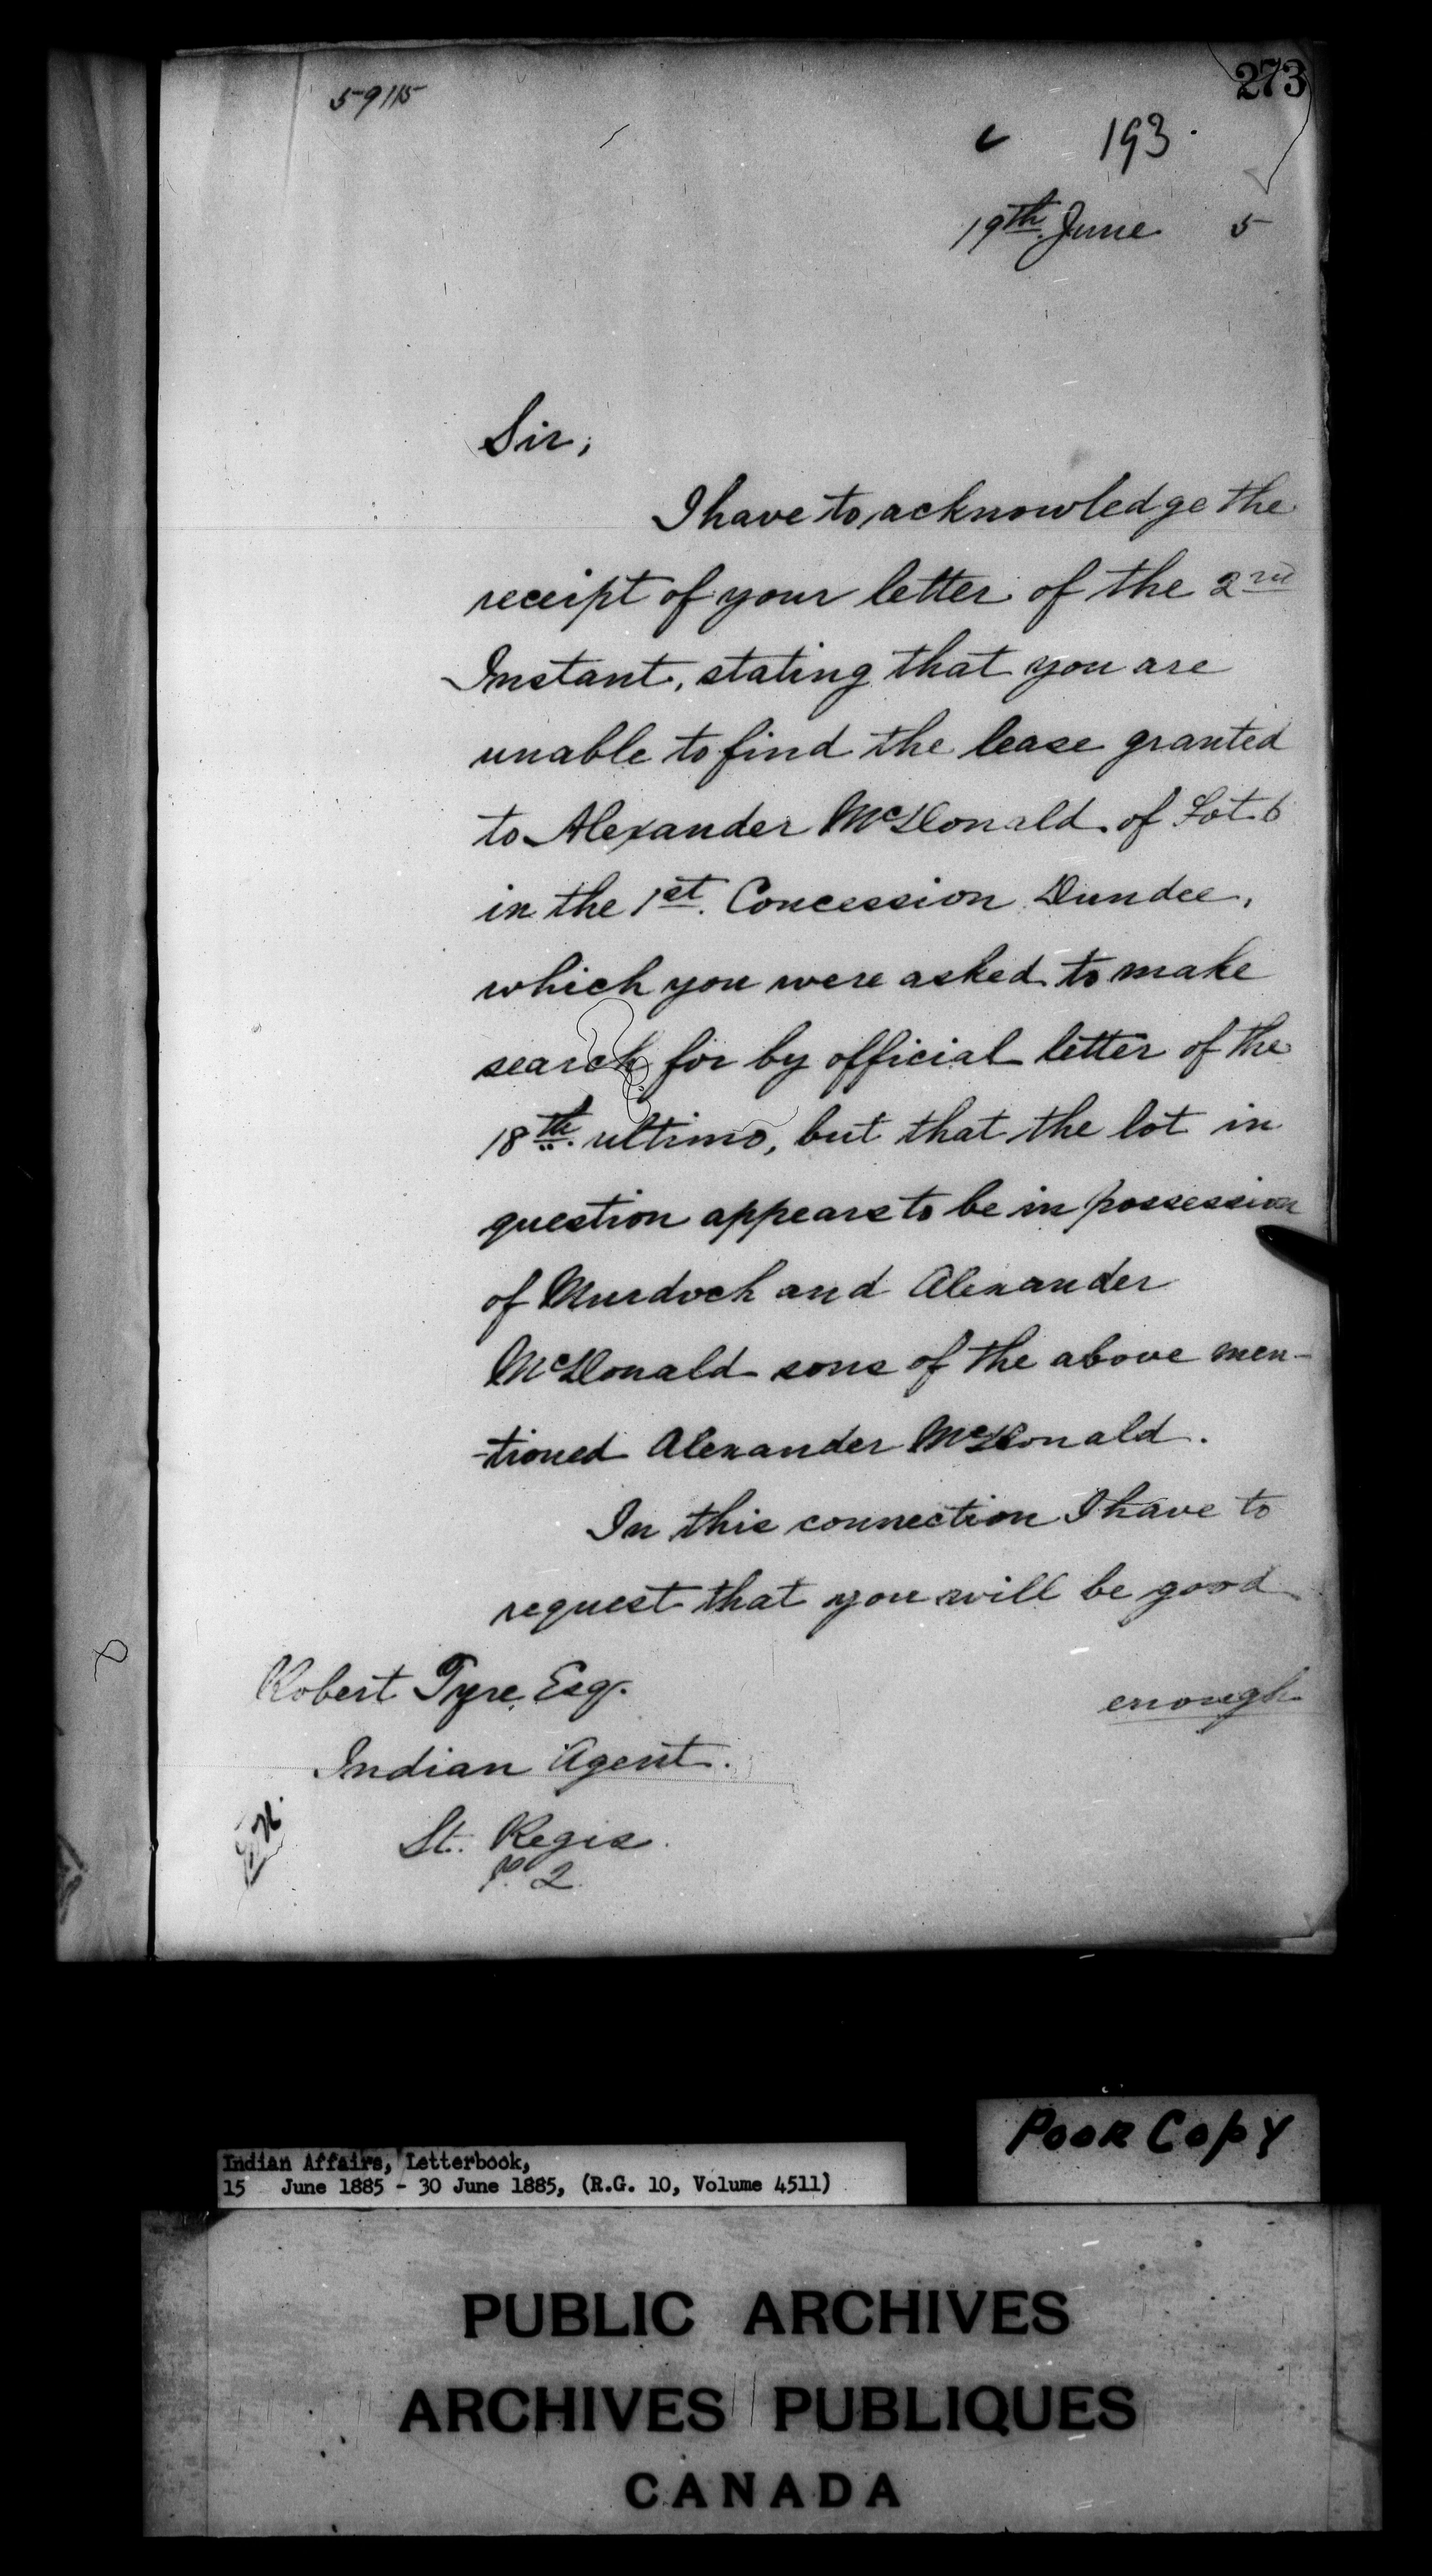 273
59115
193.
19th June 5
Sir,
I have to acknowledge the
receipt of your letter of the 2nd
Instant, stating that you are
unable to find the lease granted
to Alexander McDonald of Lot 6
in the 1st. Concession Dundee,
which you were asked to make
search for by official letter of the
18th. ultimo, but that the lot in
question appears to be in possession
of Murdoch and Alexander
McDonald sons of the above men-
-tioned Alexander McDonald.
In this connection I have to
request that you will be good
enough
Robert Tyre, Esq.
Indian Agent.
St. Regis.
P. 2
Poor Copy
Indian Affairs, Letterbook,
15 June 1885 - 30 June 1885, (R.G. 10, Volume 4511)
PUBLIC ARCHIVES
ARCHIVES PUBLIQUES
CANADA